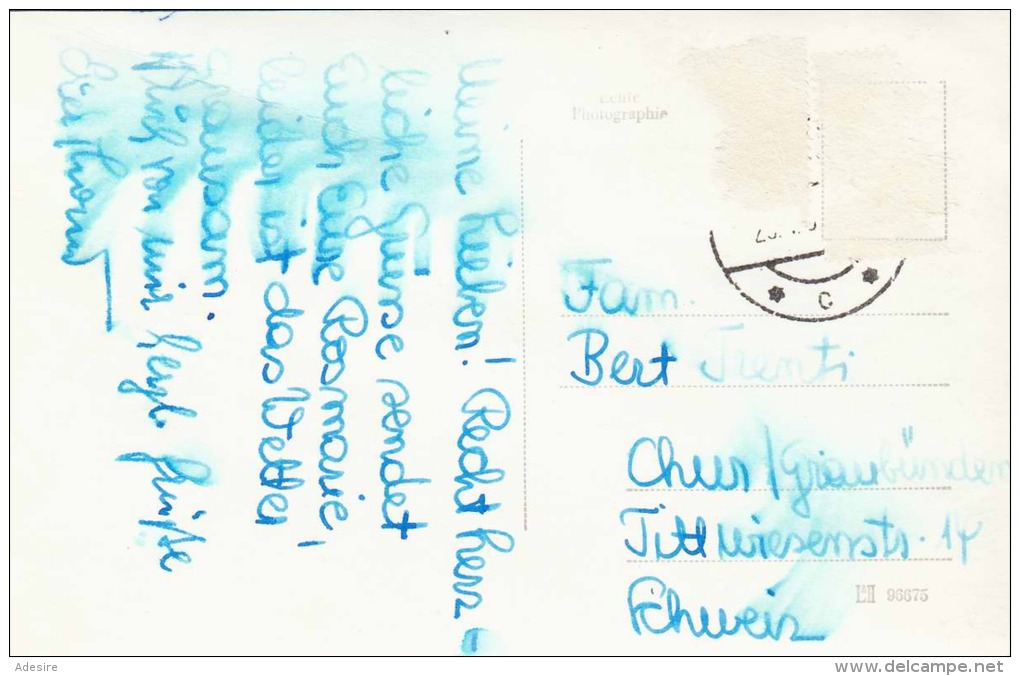 Meine Lieben! Recht herz-
liche Grüsse sendet
Euch Eure Rosmarie,
leider ist das Wetter
grausam.
Auch von mir herzl. Grüße
Echte
Photographie
Fam.
Bert Trenti
Chur/Graubünden
Tittwiesenstr. 14
Schweiz
C
LII 96675
Adesire
www.delcampe.net